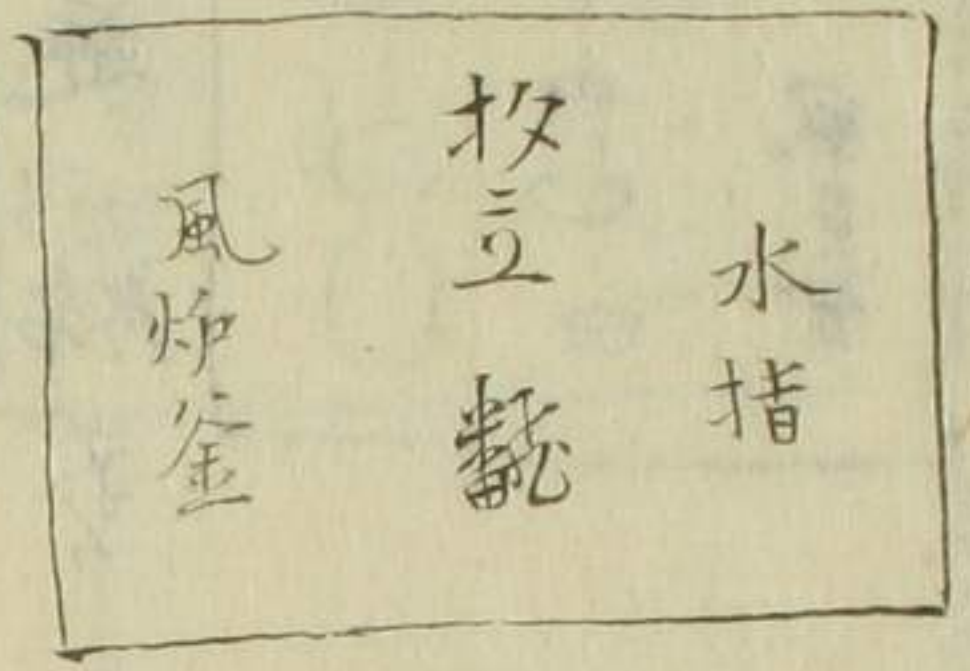 水指
杓立 飜
風炉釜